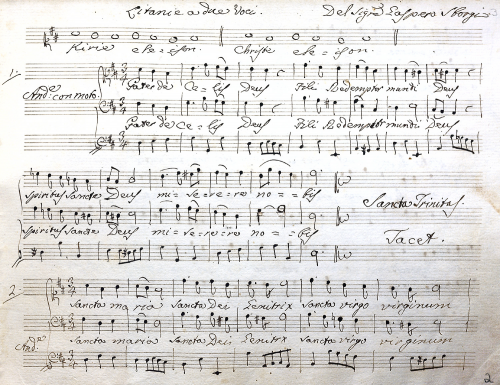 Litanie a due Voci. Del Sigre Gaspero Sborgi
Kirie ele=ison. Christe ele=ison.
1.
Pater de Ce=lis Deus Fili Redemptor mundi Deus
Ande con moto.
Pater de Ce=lis Deus Fili Redemptor mundi Deus
Spiritus Sancte Deus mi=se=re=re no==bis
Sancta Trinitas.
Spiritus Sancte Deus mi=se=re=re no==bis
Tacet.
2.
Sancta maria Sancta Dei Genitrix Sancta virgo virginum
Sancta maria Sancta Dei Genitrix Sancta virgo virginum
Ande
2